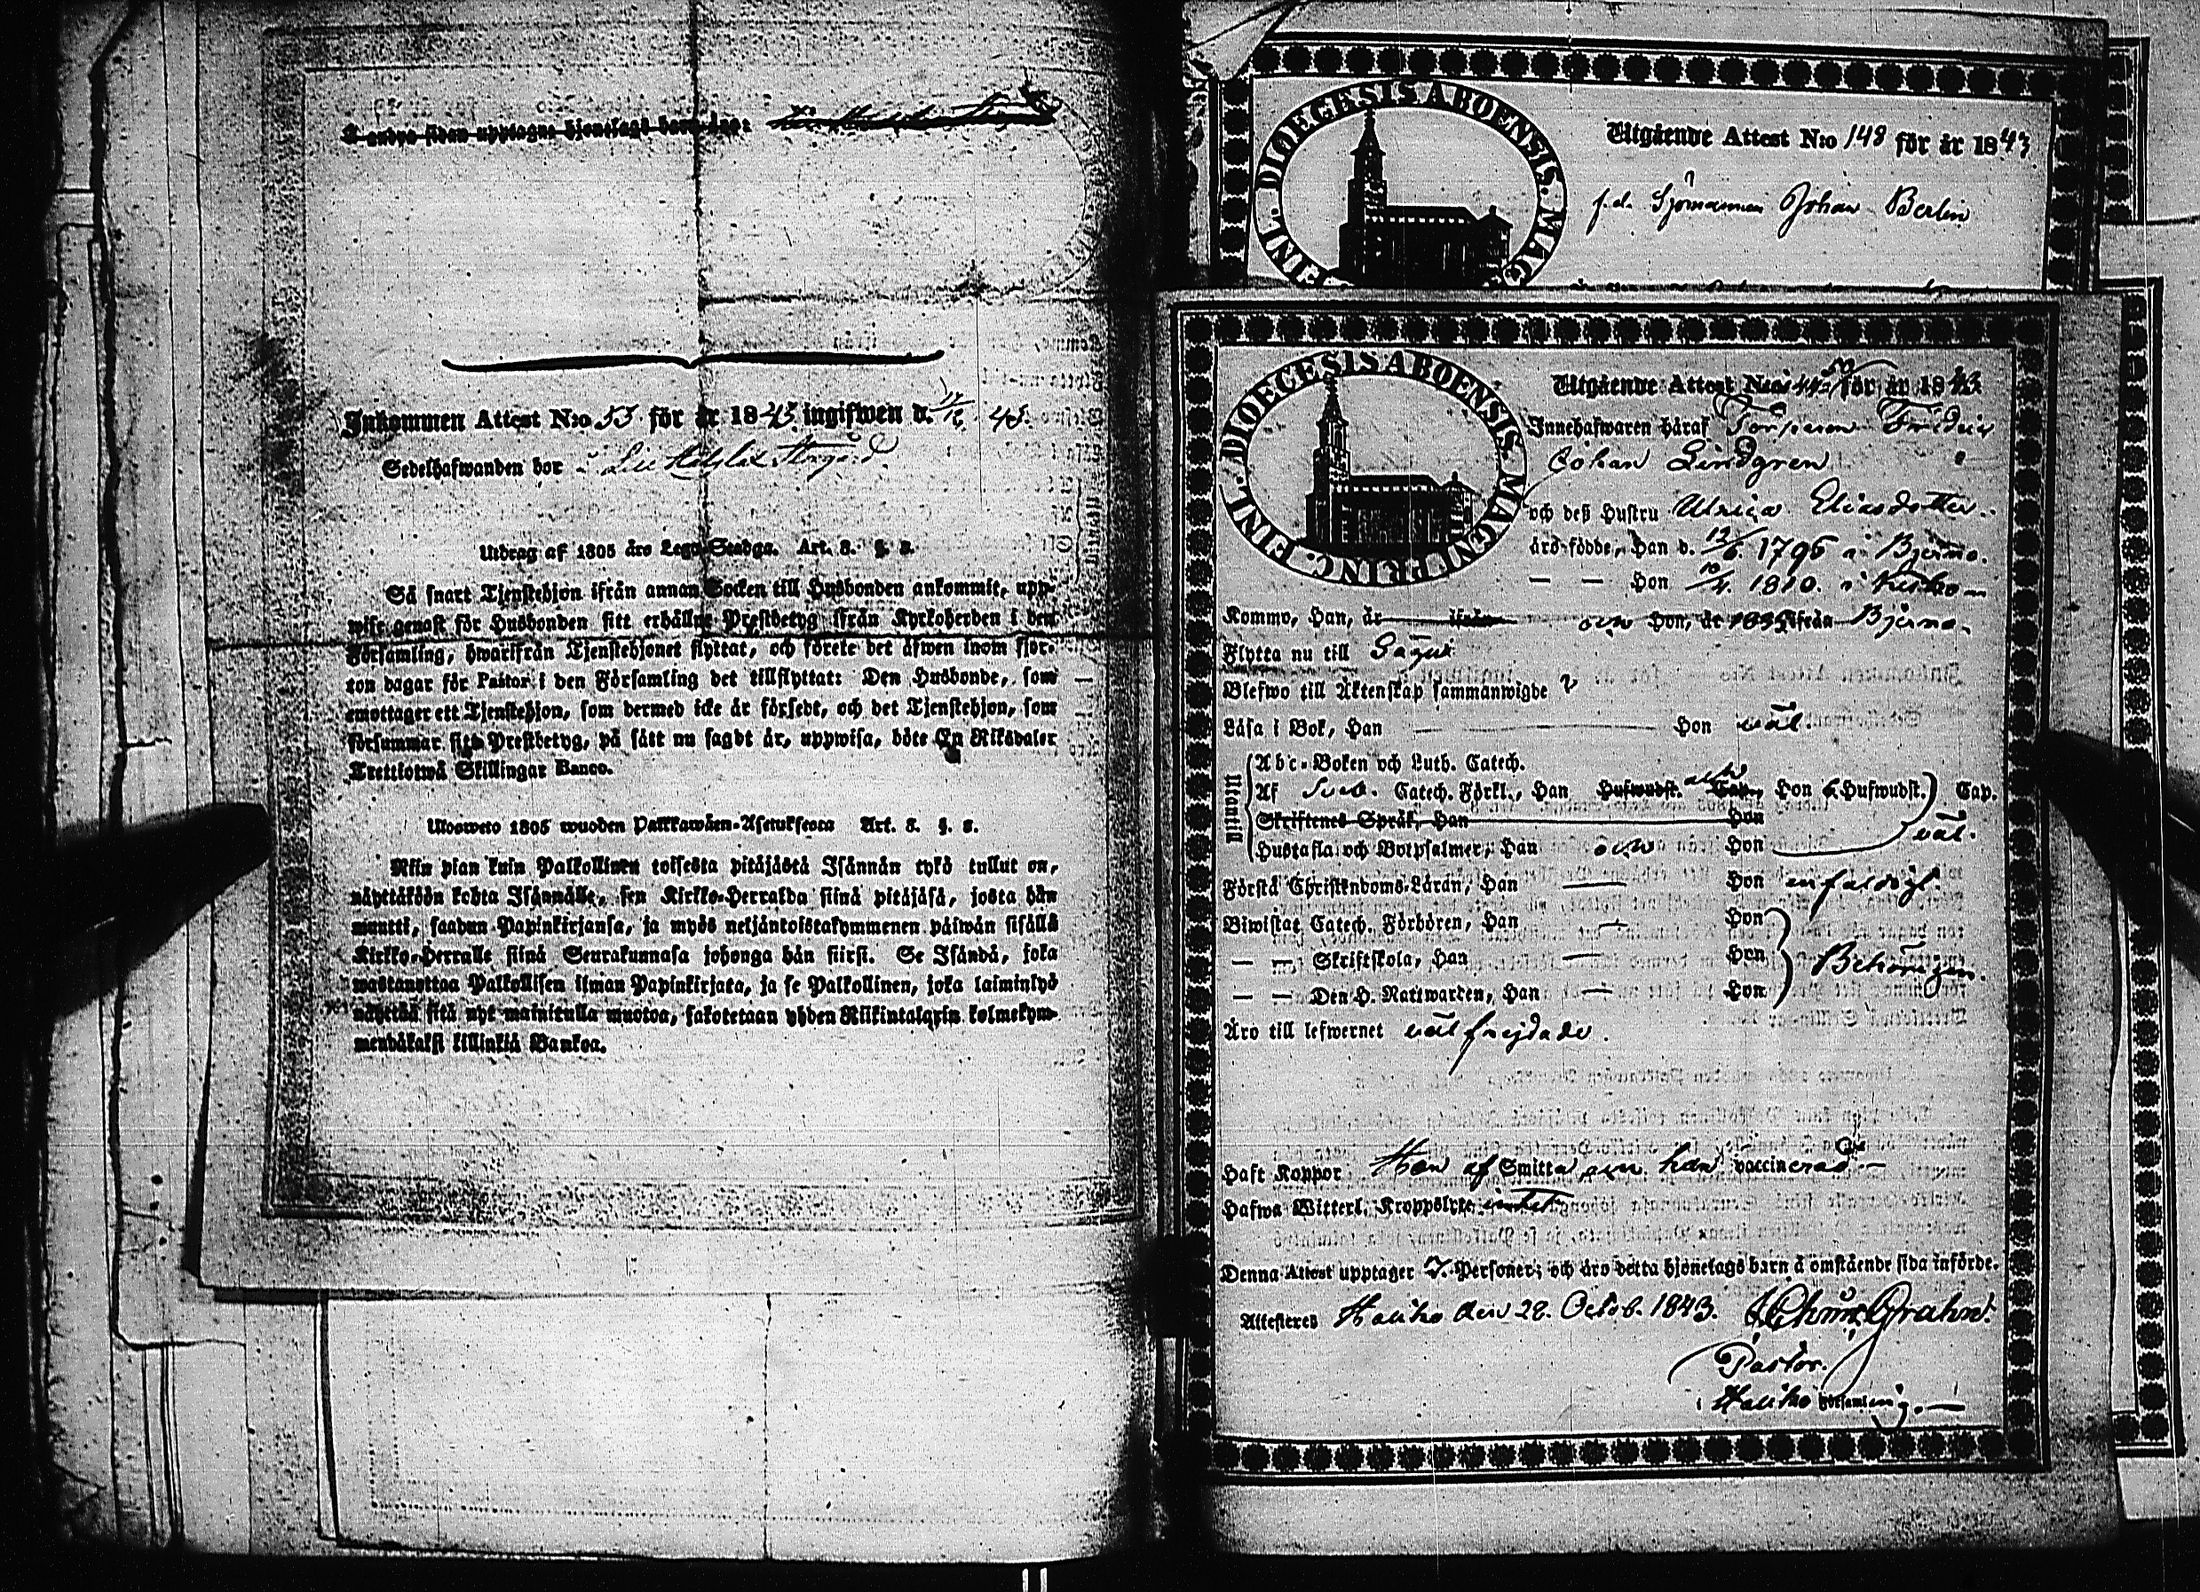 Å andra sidan upptagne hjonelags barn äro:
Inkommen Attest N:o 53 för år 1843 ingifwen d. 17/12 43.
Sedelhafwanden bor i Lill
Utdrag af 1805 års Lego-Stadga. Art. 3. §. 8.
Så snart Tjenstehjon ifrån annan Socken till Husbonden ankommit, upp-
wise genast för Husbonden sitt erhållne Prestbetyg ifrån Kyrkoherden i den
Församling, hwarifrån Tjenstehjonet flyttat, och förete det äfwen inom fjor-
ton dagar för Pastor i den Församling det tillflyttat: Den Husbonde, som
emottager ett Tjenstehjon, som dermed icke är försedt, och det Tjenstehjon, som
försummar sitt Prestbetyg, på sätt nu sagdt är, uppwisa, böte En Riksdaler
Trettiotwå Skillingar Banco.
Ulosweto 1805 wuoden Palkkawäen-Asetuksesta Art. 3. §. 8.
Niin pian kuin Palkollinen toisesta pitäjästä Isännän tykö tullut on,
näyttäköön kohta Isännälle, sen Kirkko-Herralda siinä pitäjäsä, josta hän
muutti, saadun Papinkirjansa, ja myös neljäntoistakymmenen päiwän sisällä
Kirkko-Herralle siinä Seurakunnasa johonga hän siirsi. Se Isändä, joka
wastanottaa Palkollisen ilman Papinkirjata, ja se Palkollinen, joka laiminlyö
näyttää sitä nyt mainitulla muotoa, sakotetaan yhden Riikintalarin kolmekym-
mendäkaksi killinkiä Bankoa.
DIOECESIS ABOENSIS. MAG
FINL.
Utgående Attest N:o 148 för år 1843
f. d. Sjömannen Johan Berlin
DIOECESIS ABOENSIS. MAGNI PRINC. FINL.
Utgående Attest N:o 50 för år 1843
Innehafwaren häraf Torparen Fredric
Johan Lindgren
och deß Hustru Ulrica Eliasdotter.
äro födde, Han d. 12/6 1796 i Bjerno.
— — Hon 10/4. 1810. i Kisko
Kommo, Han, år ifrån och Hon, år 1835 ifrån Bjerno.
Flytta nu till Sagu
Blefwo till Äktenskap sammanwigde
Läsa i Bok, Han Hon wäl.
Utantill
Abc-Boken och Luth. Catech.
Af Sveb. Catech. Förkl., Han Hufwudst. Cap., Hon 6 Hufwudst. Cap.
Skriftenes Språk, Han Hon
wäl.
Hustafla och Botpsalmer, Han och Hon
Förstå Christendoms-Läran, Han — Hon enfaldigt.
Biwistat Catech. Förhören, Han — Hon
— — Skriftskola, Han — Hon Behörigen.
— — Den H. Nattwarden, Han — Hon
Äro till lefwernet wälfrejdade.
Haft Koppor Hon af Smitta, han vaccinerad —
Hafwa Witterl. Kroppslyte intet
Denna Attest upptager 7. Personer; och äro detta hjonelags barn å omstående sida införde.
Attesteres Haliko den 28. Octob. 1843. Grahn.
Pastor.
i Haliko Församling. —